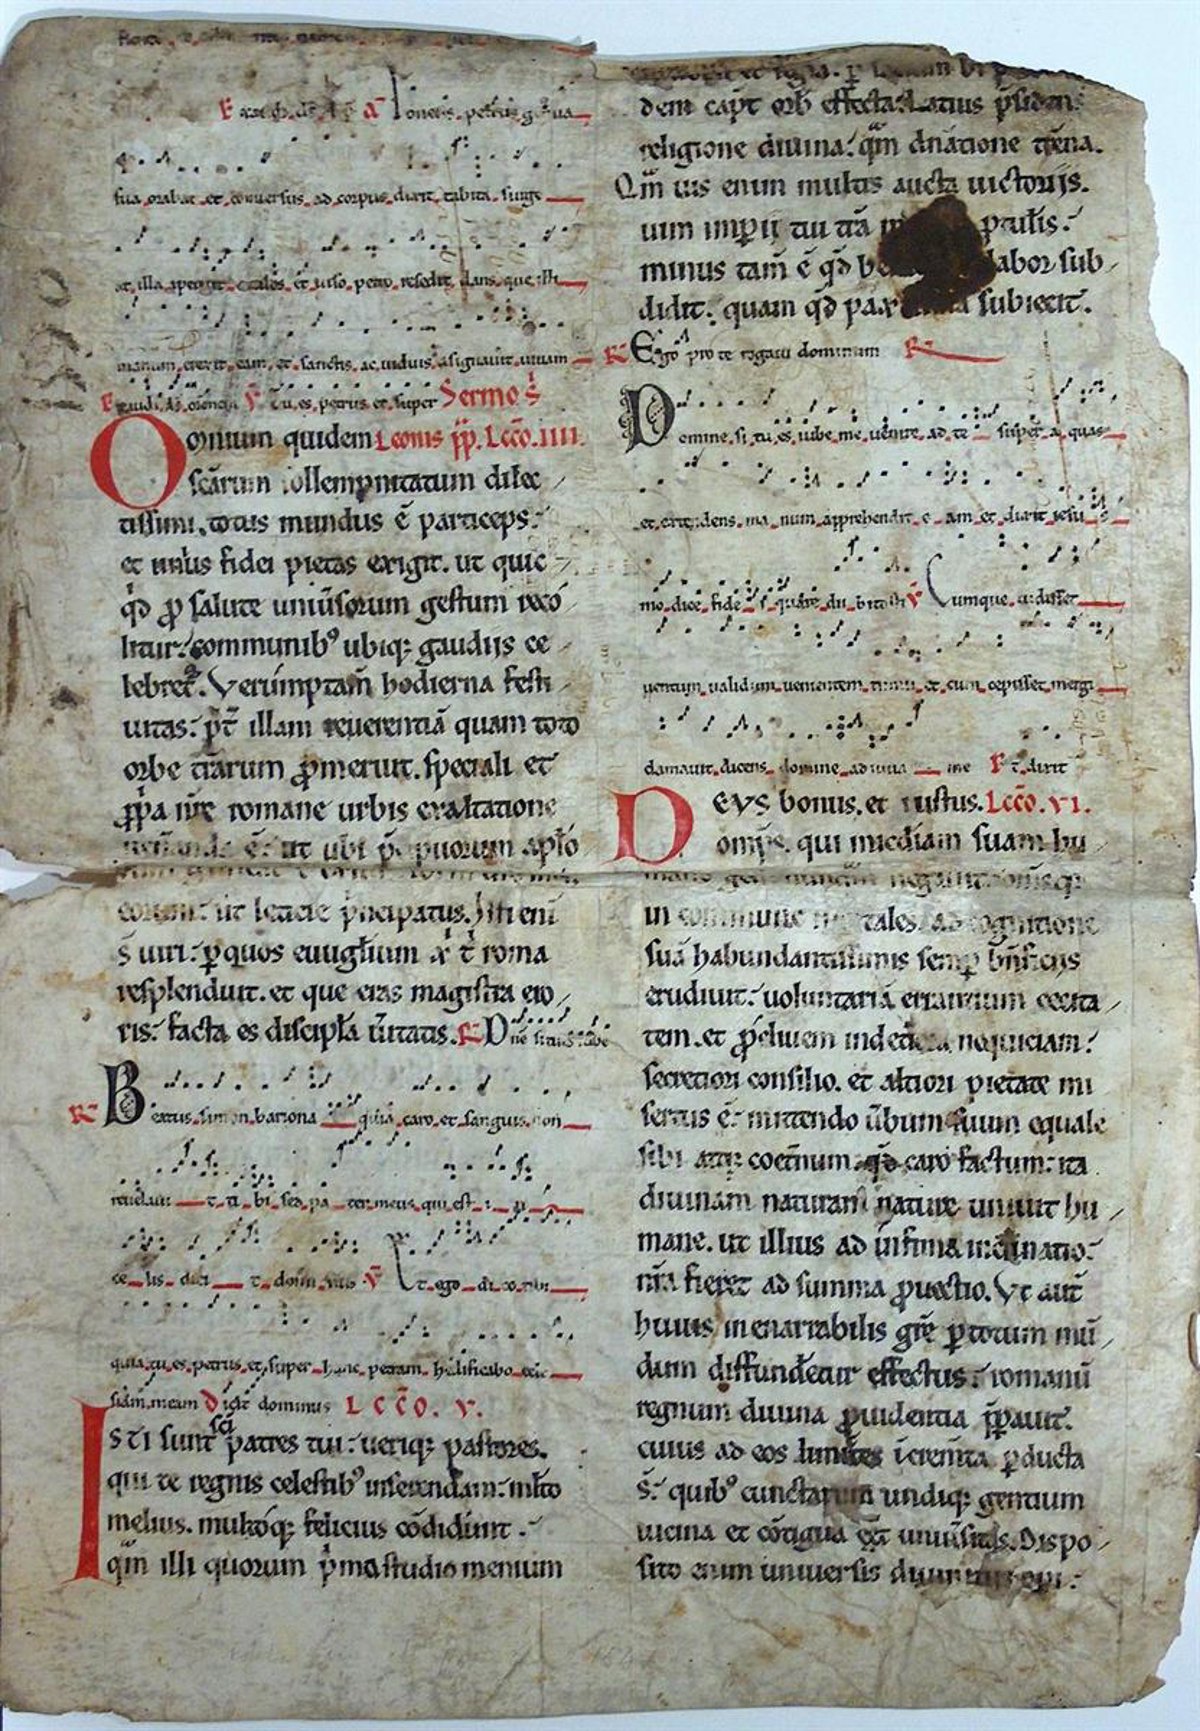 sua orabat et conuersus ad corpus dixit tabita surge
at illa aperuit oculos et uiso petro resedit dans que illi
manum erexit eam et sanctis ac uiduis asignauit uiuam
V Tu es petrus et super Sermo s̄
Omnium quidem Leonis pp̄. Lcc̄o. IIII.
sc̄arum sollempnitatum dilec
tissimi. totus mundus ē particeps.
et unius fidei pietas exigit. ut quic
q̄d ꝓ salute uniuersorum gestum reco
litur. communibꝰ ubiqꝫ gaudijs ce
lebret᷑. Verūmptam̄ hodierna festi
uitas. p̄t illam reuerentiā quam toto
orbe tr̄arum ꝓmeruit. speciali et
ꝓp̄a iure romane urbis exaltatione
ueneranda ē. ut ubi
eorum. ut leticie p̄ncipatus. Isti eni
s̄ uiri. ꝑ quos euuglium xp̄ t̄ roma
resplenduit. et que eras magistra erro
ris. facta es discipl̄a ūitatis. R Dn̄e si tu es iube
R Beatus simon bariona quia caro et sanguis non
reuelauit t ti bi sed pa ter meus qui est i n
ce lis dici t domi nus V Et ego di co tibi
quia tu es petrus et super hanc petram hedificabo eccle
siam meam Dicit dominus LCC̄O. V.
Isti sunt sc̄i patres tui. uerique pastores.
qui te regnis celestibꝰ inserendam. ml̄to
melius. multoqꝫ felicius cōdidert̄.
qm̄ illi quorum p̄mo studio menium
dem capt̄ orb̄ effecta. Latius p̄sideres
religione diuina. qm̄ dn̄atione tr̄ena.
Qm̄ uis enim multis aucta uictorijs.
ium imp̄ij tui tr̄a ptulis.
minus tam̄ ē q̄d be labor sub
didit. quam q̄d pax subiecit.
R Ego pro te rogaui dominum R
Domine si tu es iube me uenire ad te super a quas
et extendens ma num apprehendit e am et dixit iesu s
mo dice fide s quare du bitasti V Cumque uidisset
uentum validum uenientem timuit et cum cepisset mergi
clamauit dicens domine adiuua me R Et dixit
DEVS bonus. et iustus. Lcc̄o. VI.
omp̄s. qui mic̄diam suam hu
mano gen negauit
in commune mortales ad cognitione
suā habundantissimis semp̄ bn̄ficijs
erudiuit. uoluntariā errantium cecita
tem. et ꝓcliuem in deteriora nequiciam.
secretiori consilio. et altiori pietate mi
sertus ē. mittendo ūbum suum equale
sibi atqꝫ coet̄num. q̄d caro factum. ita
diuinam naturam nature uniuit hu
mane. ut illius ad infima inclinatio.
nr̄a fieret ad summa ꝓuectio. Vt aut̄
huius inenarrabilis gr̄e ꝑ totum mū
dum diffunderetur effectus. romanū
regnum diuina ꝓuidentia p̄pauit.
cuius ad eos limites increm̄ta ꝑducta
s̄. quibꝰ cunctarum undiqꝫ gentium
uicina et cōtigua eēt uniūsitas. Dispo
sito enim uniuersis diuinitus opi.